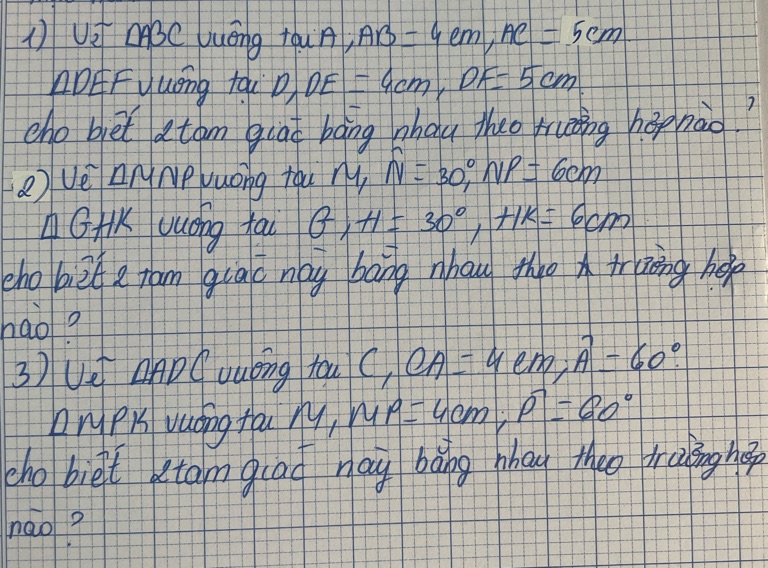 1) Vẽ ΔABC vuông tại A, AB = 4cm, AC = 5cm
ΔDEF vuông tại D, DE = 4cm, DF = 5cm
cho biết 2 tam giác bằng nhau theo trường hợp nào?
2) Vẽ ΔMNP vuông tại M, N̂ = 30°, NP = 6cm
ΔGHK vuông tại G, H = 30°, HK = 6cm
cho biết 2 tam giác này bằng nhau theo trường hợp
nào?
3) Vẽ ΔADC vuông tại C, CA = 4cm, Â = 60°.
ΔMPK vuông tại M, MP = 4cm, P̂ = 60°
cho biết 2 tam giác này bằng nhau theo trường hợp
nào?